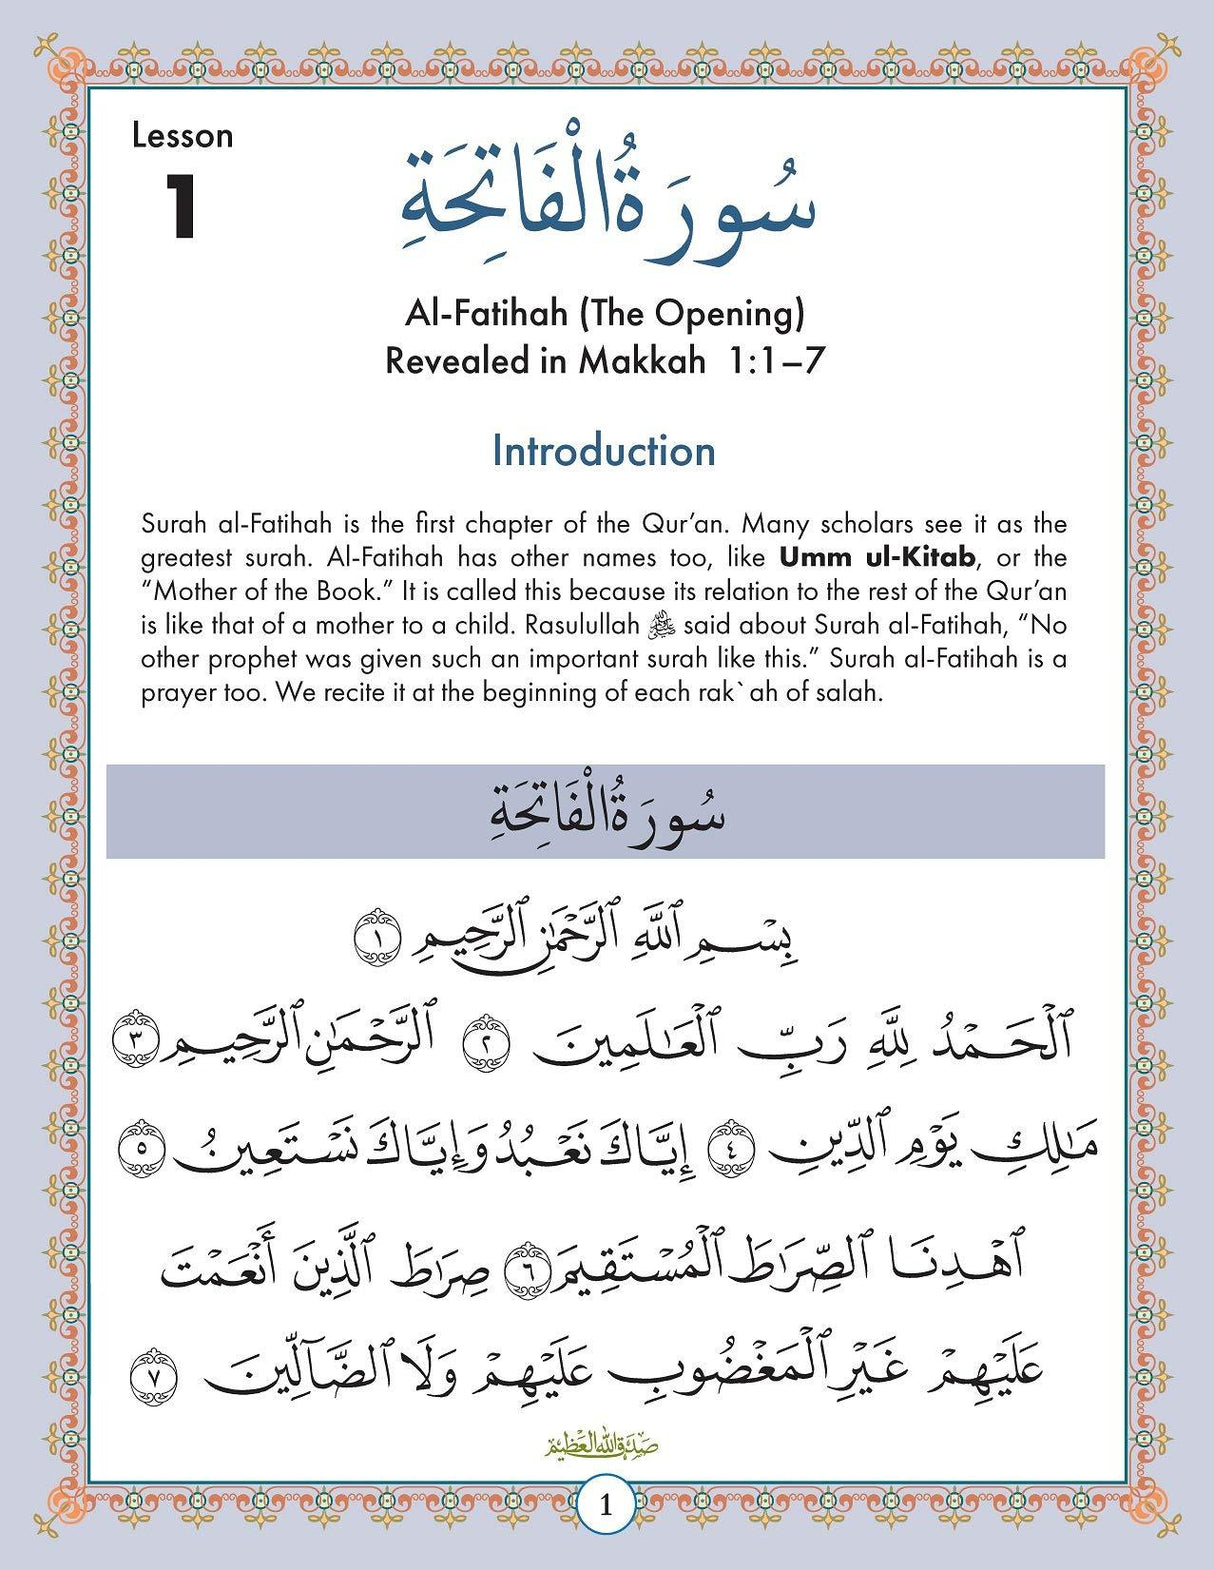 Lesson
1
سُورَةُ الْفَاتِحَةِ
Al-Fatihah (The Opening)
Revealed in Makkah 1:1–7
Introduction
Surah al-Fatihah is the first chapter of the Qur’an. Many scholars see it as the
greatest surah. Al-Fatihah has other names too, like Umm ul-Kitab, or the
“Mother of the Book.” It is called this because its relation to the rest of the Qur’an
is like that of a mother to a child. Rasulullah ﷺ said about Surah al-Fatihah, “No
other prophet was given such an important surah like this.” Surah al-Fatihah is a
prayer too. We recite it at the beginning of each rak`ah of salah.
سُورَةُ الْفَاتِحَةِ
بِسْمِ ٱللَّهِ ٱلرَّحْمَٰنِ ٱلرَّحِيمِ ١
ٱلْحَمْدُ لِلَّهِ رَبِّ ٱلْعَٰلَمِينَ ٢ ٱلرَّحْمَٰنِ ٱلرَّحِيمِ ٣
مَٰلِكِ يَوْمِ ٱلدِّينِ ٤ إِيَّاكَ نَعْبُدُ وَإِيَّاكَ نَسْتَعِينُ ٥
ٱهْدِنَا ٱلصِّرَٰطَ ٱلْمُسْتَقِيمَ ٦ صِرَٰطَ ٱلَّذِينَ أَنْعَمْتَ
عَلَيْهِمْ غَيْرِ ٱلْمَغْضُوبِ عَلَيْهِمْ وَلَا ٱلضَّآلِّينَ ٧
صَدَقَ اللهُ الْعَظِيْم
1